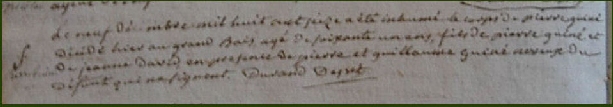 Le neuf décembre mil huit cent seize a été inhumé le corps de pierre quiné
décédé hier au grand Bois, agé de soixante un ans, fils de pierre quiné et
de jeanne David en presence de pierre et guillaume quiné neveux du
défunt qui ne signent. Durand Desrt